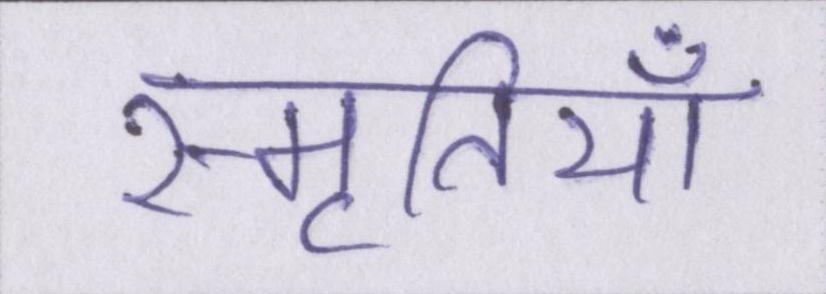 स्मृतियाँ